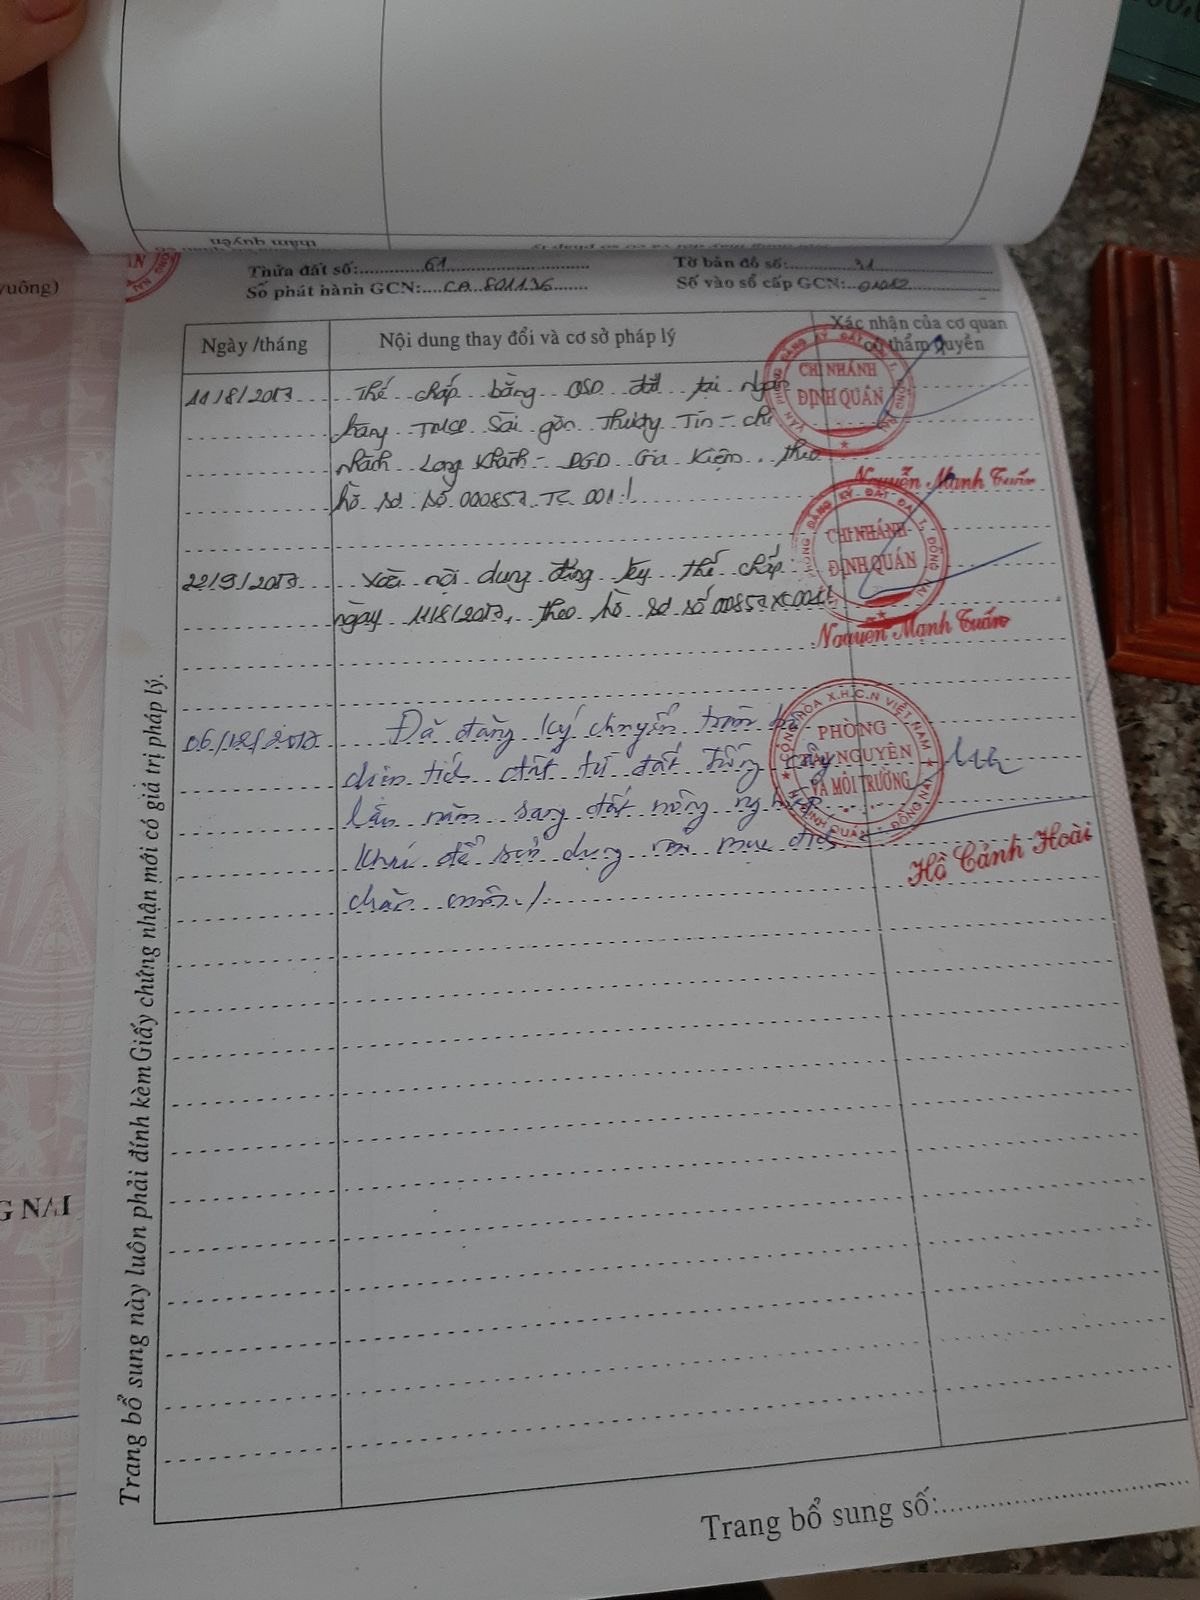 Thửa đất số: 61 Tờ bản đồ số: 31
Số phát hành GCN: CA 801136 Số vào sổ cấp GCN: 01012
Ngày /tháng
Nội dung thay đổi và cơ sở pháp lý
Xác nhận của cơ quan
có thẩm quyền
11/8/2017 Thế chấp bằng QSD đất tại Ngân
hàng TMCP Sài gòn Thương Tín - chi
nhánh Long Khánh - PGD Gia Kiệm, theo
hồ sơ số 000857.TC.001./
CHI NHÁNH
ĐỊNH QUÁN
Nguyễn Mạnh Tuấn
22/9/2017 Xóa nội dung đăng ký thế chấp
ngày 11/8/2017, theo hồ sơ số 00857XC001./
CHI NHÁNH
ĐỊNH QUÁN
Nguyễn Mạnh Tuấn
06/12/2017 Đã đăng ký chuyển toàn bộ
diện tích đất từ đất trồng cây
lâu năm sang đất nông nghiệp
khác để sử dụng mục đích
chăn nuôi./
CỘNG HÒA X.H.C.N VIỆT NAM
PHÒNG
TÀI NGUYÊN
VÀ MÔI TRƯỜNG
H. ĐỊNH QUÁN - ĐỒNG NAI
Hồ Cảnh Hoài
Trang bổ sung này luôn phải đính kèm Giấy chứng nhận mới có giá trị pháp lý.
Trang bổ sung số:
vuông)
G NAI